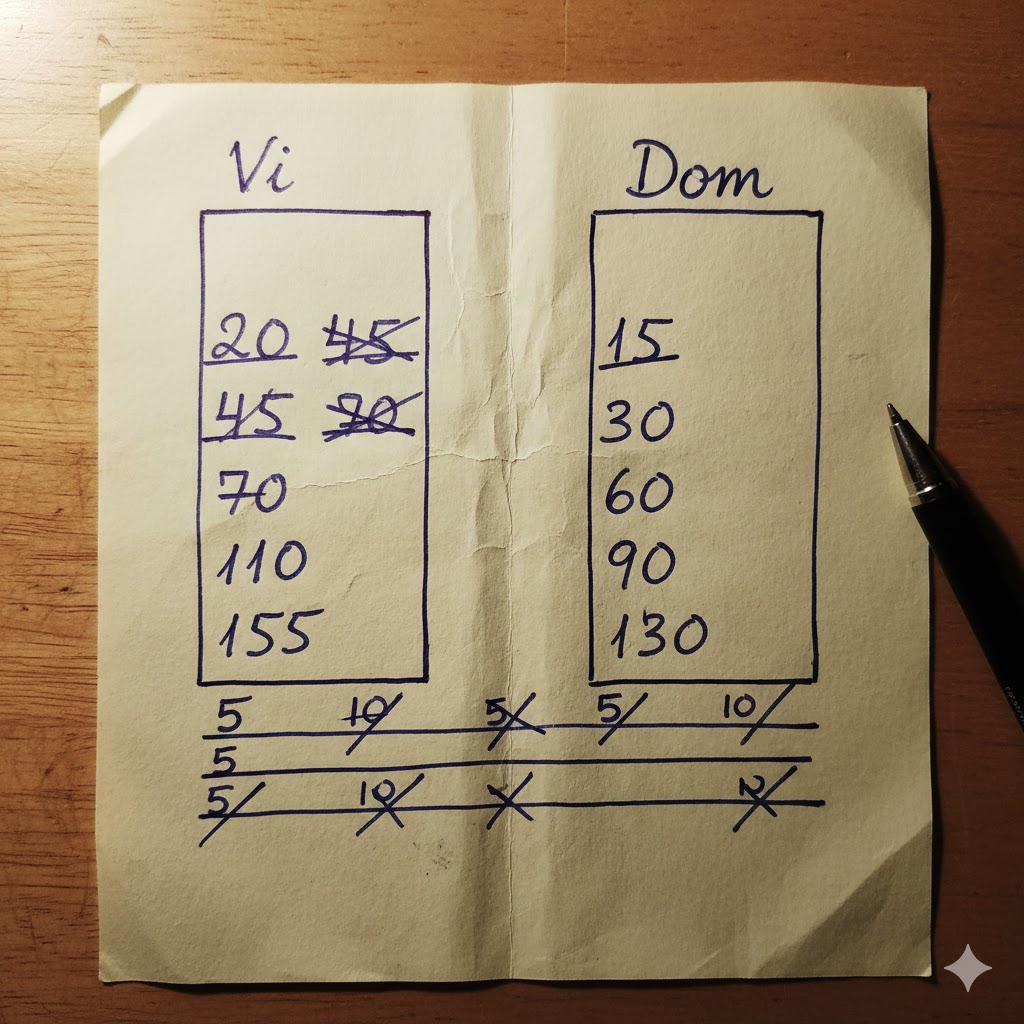 Vi Dom
20 45 15
45 30
70 60
110 90
155 130
5 10 5 5 10
5
5 10